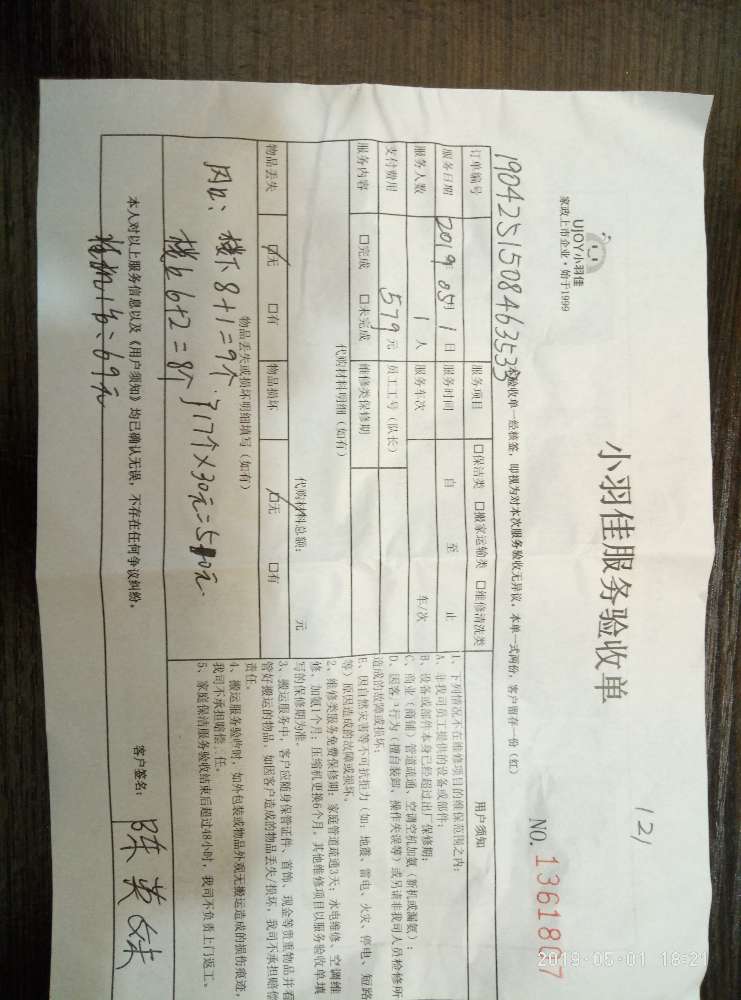 UJOY小羽佳
家政上市企业·始于1999
小羽佳服务验收单
121
NO. 1361807
本验收单一经核签，即视为对本次服务验收无异议，本单一式两份，客户留存一份（红）
订单编号 1904251508463535 服务项目 □保洁类 □搬家运输类 □维修清洗类
服务日期 2019年05月1日 服务时间 自 至 止
服务人数 1人 服务车次 车/次
支付费用 579元 员工工号（队长）
服务内容 □完成 □未完成 维修类保修期
代购材料明细（如有）
代购材料总额： 元
物品丢失 □无 □有 物品损坏 □无 □有
物品丢失或损坏明细填写（如有）
风口：楼下8+1=9个
楼上6+2=8个
17个×30元=510元
1台：69元
用户须知
1、下列情况不在维修项目的维保范围之内：
A、非我司员工提供的设备或部件；
B、设备或部件本身已经超过出厂保修期；
C、商业（商铺）管道疏通、空调空机加氨（新机或漏氨）；
D、因客户行为（擅自装卸、操作失误等）或另请非我司人员检修所
造成的故障或损坏；
E、因自然灾害等不可抗拒力（如：地震、雷电、火灾、停电、短路
等）原因造成的故障或损坏。
2、维修类服务免费保修期：家庭管道疏通3天；水电维修、空调维
修、加氨1个月；压缩机更换6个月，其他维修项目以服务验收单填
写的保修期为准。
3、搬运服务中，客户应随身保管证件、首饰、现金等贵重物品并看
管好搬运的物品，如因客户造成的物品丢失/损坏，我司不承担赔偿
责任。
4、搬运服务验收时，如外包装或物品外观无搬运造成的损伤痕迹，
我司不承担赔偿 任。
5、家庭保洁服务验收结束后超过48小时，我司不负责上门返工。
本人对以上服务信息以及《用户须知》均已确认无误，不存在任何争议纠纷。
客户签名：陈英妹
2019-05-01 18:21